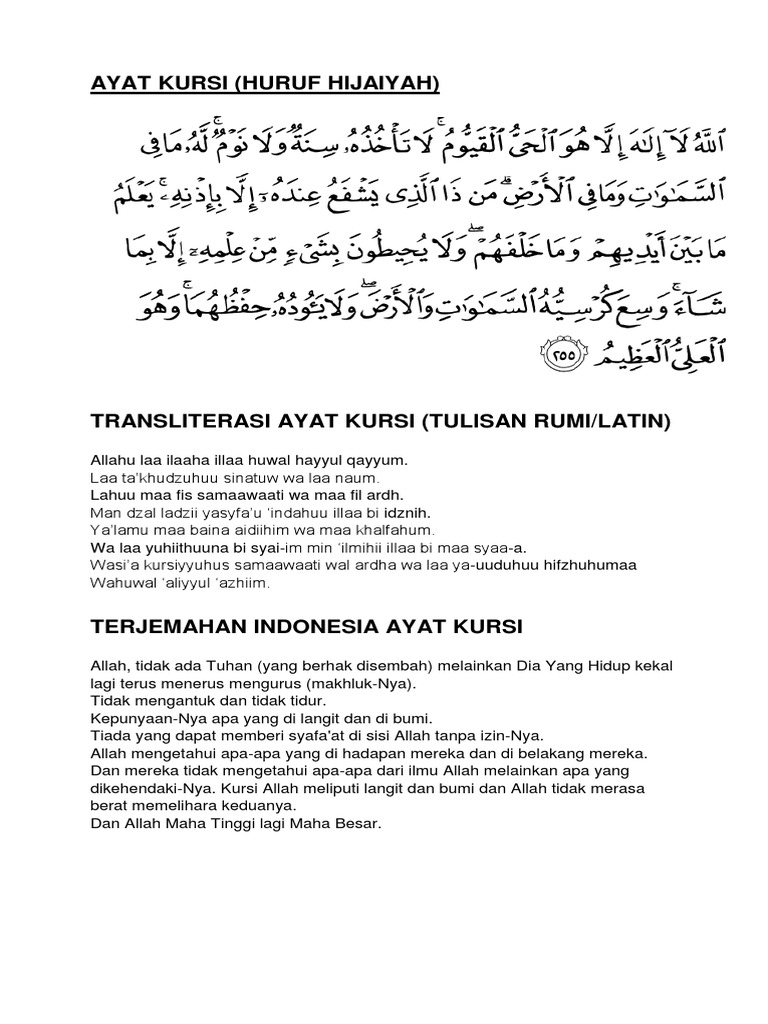 AYAT KURSI (HURUF HIJAIYAH)
ٱللَّهُ لَآ إِلَـٰهَ إِلَّا هُوَ ٱلْحَىُّ ٱلْقَيُّومُ ۚ لَا تَأْخُذُهُۥ سِنَةٌ وَلَا نَوْمٌ ۚ لَّهُۥ مَا فِى
ٱلسَّمَـٰوَٰتِ وَمَا فِى ٱلْأَرْضِ ۗ مَن ذَا ٱلَّذِى يَشْفَعُ عِندَهُۥٓ إِلَّا بِإِذْنِهِۦ ۚ يَعْلَمُ
مَا بَيْنَ أَيْدِيهِمْ وَمَا خَلْفَهُمْ ۖ وَلَا يُحِيطُونَ بِشَىْءٍ مِّنْ عِلْمِهِۦٓ إِلَّا بِمَا
شَآءَ ۚ وَسِعَ كُرْسِيُّهُ ٱلسَّمَـٰوَٰتِ وَٱلْأَرْضَ ۖ وَلَا يَـُٔودُهُۥ حِفْظُهُمَا ۚ وَهُوَ
ٱلْعَلِىُّ ٱلْعَظِيمُ ٢٥٥
TRANSLITERASI AYAT KURSI (TULISAN RUMI/LATIN)
Allahu laa ilaaha illaa huwal hayyul qayyum.
Laa ta’khudzuhuu sinatuw wa laa naum.
Lahuu maa fis samaawaati wa maa fil ardh.
Man dzal ladzii yasyfa’u ‘indahuu illaa bi idznih.
Ya’lamu maa baina aidiihim wa maa khalfahum.
Wa laa yuhiithuuna bi syai-im min ‘ilmihii illaa bi maa syaa-a.
Wasi’a kursiyyuhus samaawaati wal ardha wa laa ya-uuduhuu hifzhuhumaa
Wahuwal ‘aliyyul ‘azhiim.
TERJEMAHAN INDONESIA AYAT KURSI
Allah, tidak ada Tuhan (yang berhak disembah) melainkan Dia Yang Hidup kekal
lagi terus menerus mengurus (makhluk-Nya).
Tidak mengantuk dan tidak tidur.
Kepunyaan-Nya apa yang di langit dan di bumi.
Tiada yang dapat memberi syafa'at di sisi Allah tanpa izin-Nya.
Allah mengetahui apa-apa yang di hadapan mereka dan di belakang mereka.
Dan mereka tidak mengetahui apa-apa dari ilmu Allah melainkan apa yang
dikehendaki-Nya. Kursi Allah meliputi langit dan bumi dan Allah tidak merasa
berat memelihara keduanya.
Dan Allah Maha Tinggi lagi Maha Besar.